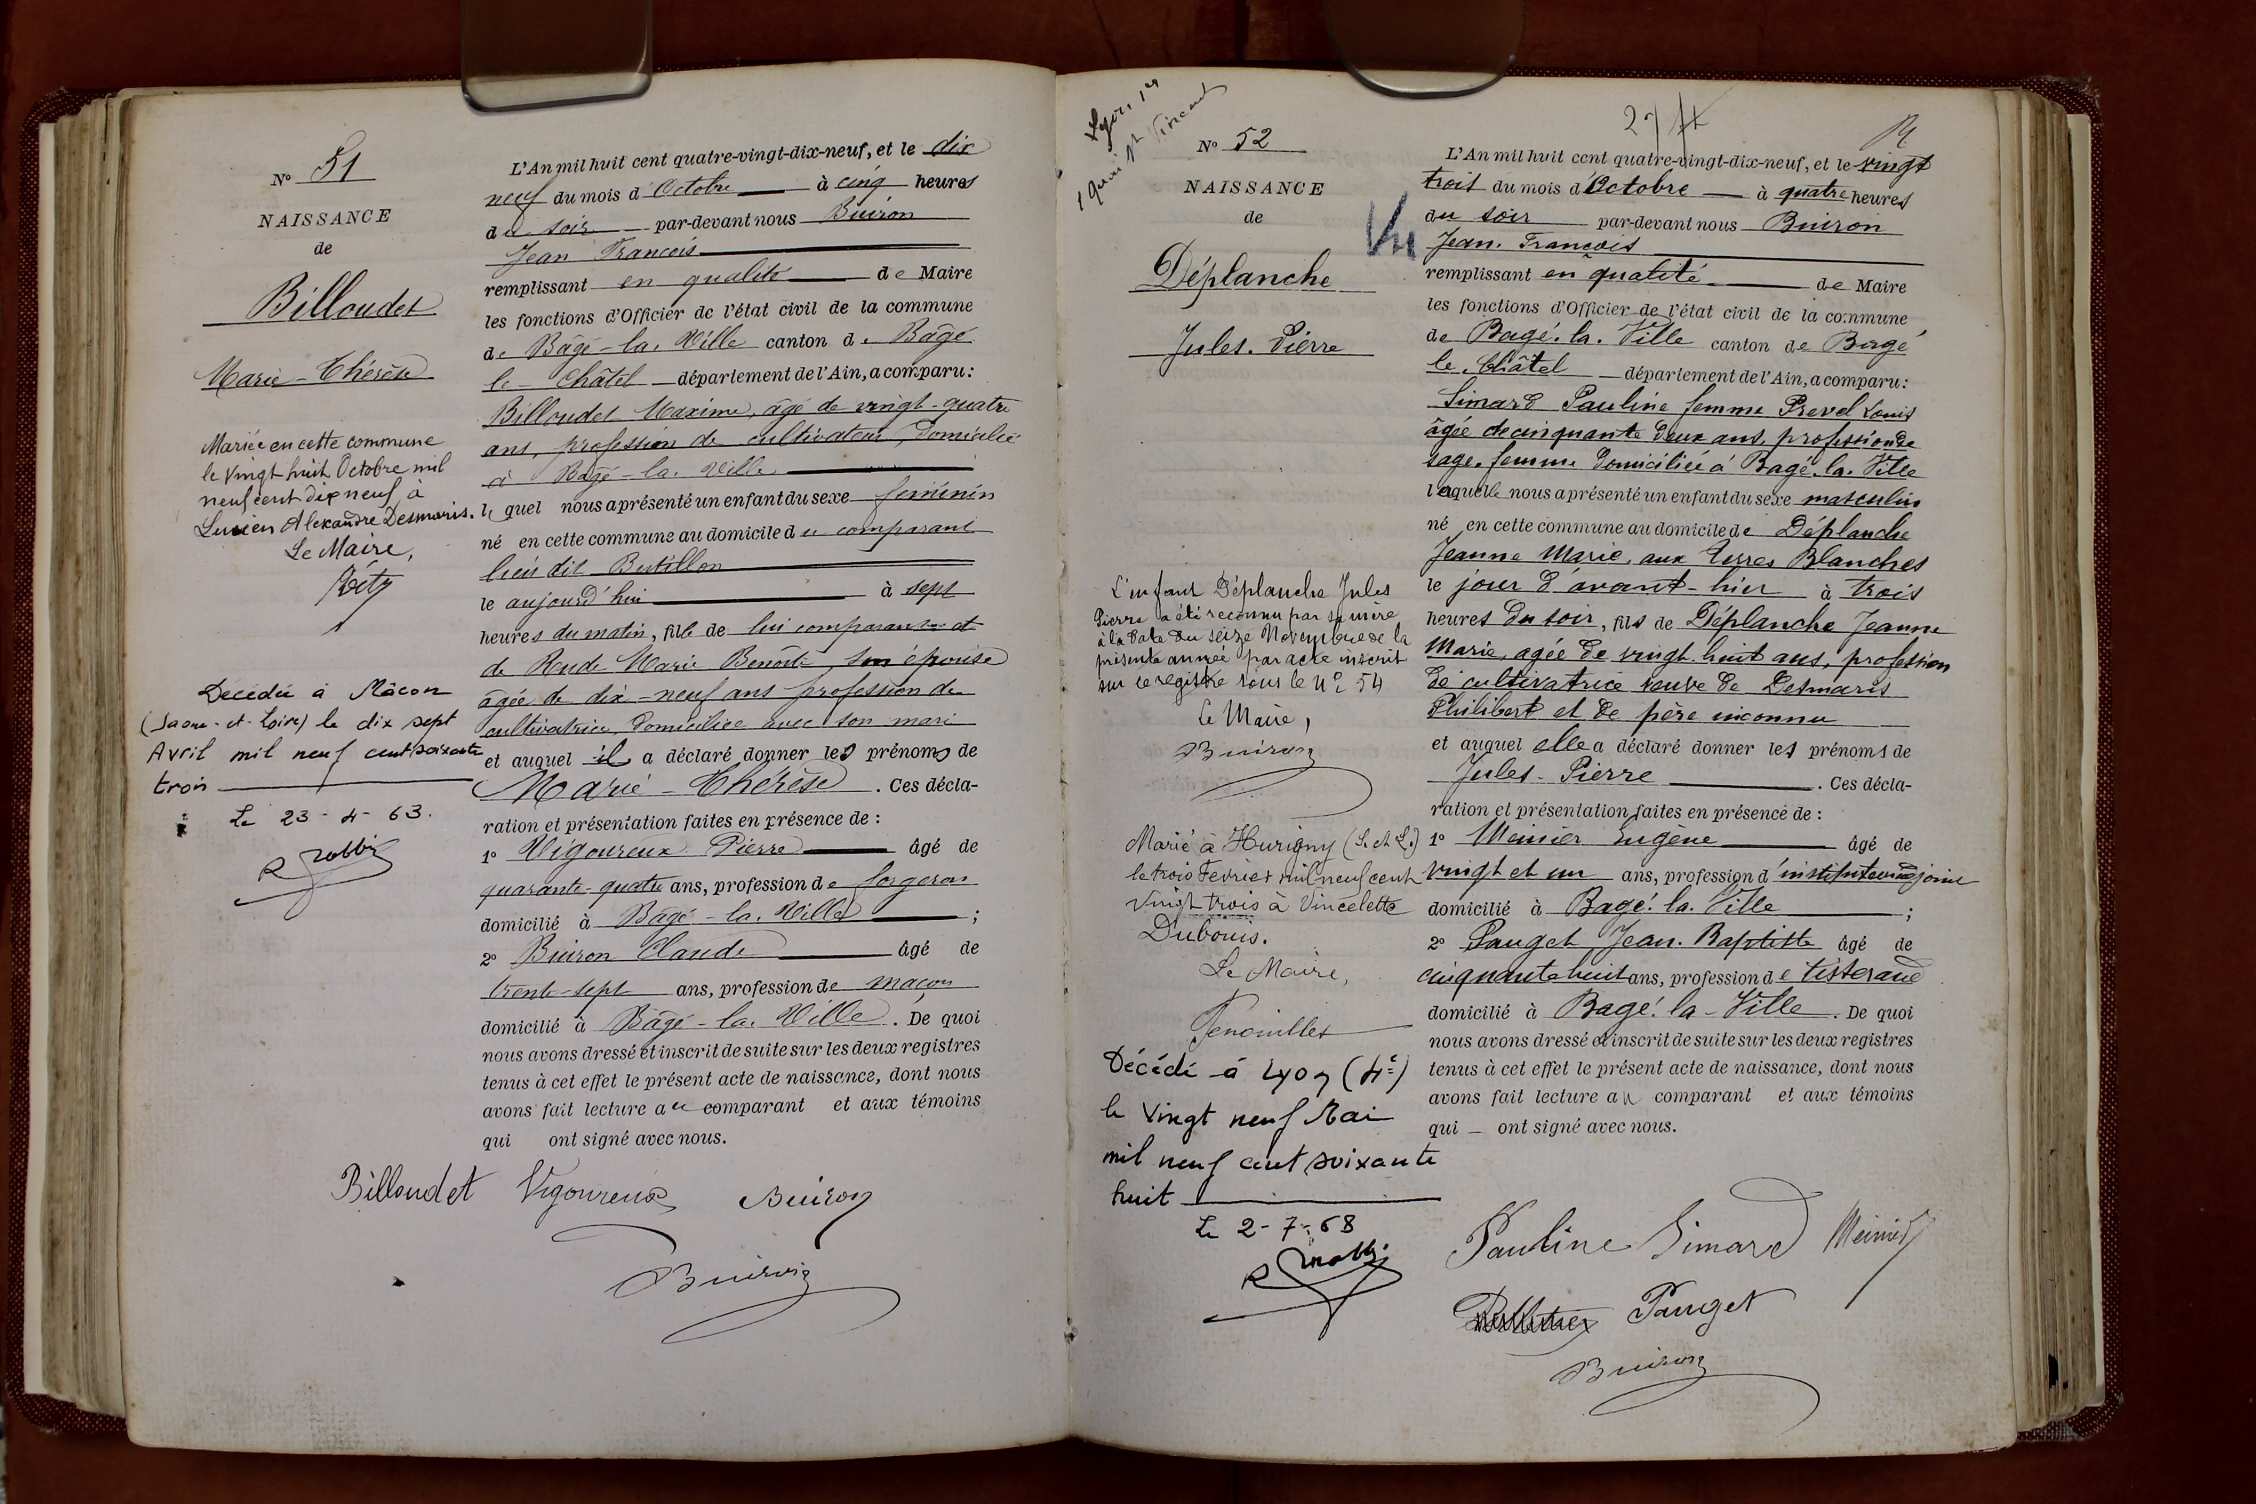 N° 51
NAISSANCE
de
Billoudet
Marie-Thérèse
Mariée en cette commune
le vingt huit Octobre mil
neuf cent dix neuf à
Lucien Alexandre Desmaris.
Le Maire,
Décédée à Mâcon
(Saône-et-Loire) le dix sept
Avril mil neuf cent soixante
trois
Le 23-4-63.
L'An mil huit cent quatre-vingt-dix-neuf, et le dix
neuf du mois d'Octobre à cinq heures
du soir par-devant nous Buiron
Jean François
remplissant en qualité de Maire
les fonctions d'Officier de l'état civil de la commune
de Bâgé-la-Ville canton de Bâgé
le-Châtel département de l'Ain, a comparu:
Billoudet Maxime, âgé de vingt-quatre
ans, profession de cultivateur, domicilié
à Bâgé-la-Ville
lequel nous a présenté un enfant du sexe féminin
né en cette commune au domicile du comparant
lieu dit Butillon
le aujourd'hui à sept
heures du matin, fille de lui comparant et
de Rude Marie Benoîte, son épouse
âgée de dix-neuf ans profession de
cultivatrice, domiciliée avec son mari
et auquel il a déclaré donner les prénoms de
Marie-Thérèse. Ces décla-
ration et présentation faites en présence de :
1° Vigoureux Pierre âgé de
quarante-quatre ans, profession de forgeron
domicilié à Bâgé-la-Ville ;
2° Buiron Claude âgé de
trente-sept ans, profession de maçon
domicilié à Bâgé-la-Ville. De quoi
nous avons dressé et inscrit de suite sur les deux registres
tenus à cet effet le présent acte de naissance, dont nous
avons fait lecture au comparant et aux témoins
qui ont signé avec nous.
Billoudet Vigoureux Buiron
Buiron
Lyon 1er
1 Quai St Vincent
N° 52
NAISSANCE
de
Déplanche
Jules-Pierre
L'enfant Déplanche Jules
Pierre a été reconnu par sa mère
à la date du seize Novembre de la
présente année par acte inscrit
sur ce registre sous le N° 54
Le Maire,
Buiron
Marié à Hurigny (S. et L.)
le trois Février mil neuf cent
vingt trois à Vincelette
Dubouis.
Le Maire,
Décédé à Lyon (4e)
le vingt neuf Mai
mil neuf cent soixante
huit
Le 2-7-68
Vu
L'An mil huit cent quatre-vingt-dix-neuf, et le vingt
trois du mois d'Octobre à quatre heures
du soir par-devant nous Buiron
Jean-François
remplissant en qualité de Maire
les fonctions d'Officier de l'état civil de la commune
de Bagé-la-Ville canton de Bagé
le-Châtel département de l'Ain, a comparu:
Simard Pauline femme Prevel Louis
âgée de cinquante deux ans, profession de
sage-femme domiciliée à Bagé-la-Ville
laquelle nous a présenté un enfant du sexe masculin
né en cette commune au domicile de Déplanche
Jeanne Marie, aux Terres Blanches
le jour d'avant-hier à trois
heures du soir, fils de Déplanche Jeanne
Marie, agée de vingt-huit ans, profession
de cultivatrice veuve de Desmaris
Philibert et de père inconnu
et auquel elle a déclaré donner les prénoms de
Jules-Pierre. Ces décla-
ration et présentation faites en présence de :
1° Meinier Eugène âgé de
vingt et un ans, profession d'instituteur adjoint
domicilié à Bagé-la-Ville ;
2° Pauget Jean-Baptiste âgé de
cinquante huit ans, profession de tisserand
domicilié à Bagé-la-Ville. De quoi
nous avons dressé et inscrit de suite sur les deux registres
tenus à cet effet le présent acte de naissance, dont nous
avons fait lecture au comparant et aux témoins
qui ont signé avec nous.
Pauline Simard Meinier
Pauget
Buiron